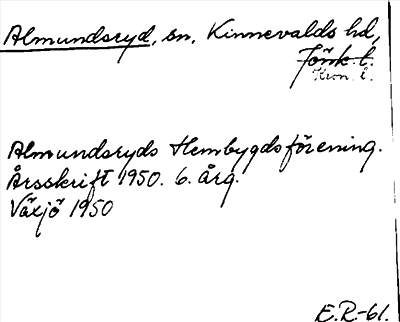 Almundsryd, sn, Kinnevalds hd,
Jönk. l.
Kron. l.
Almundsryds Hembygdsförening.
Årsskrift 1950. 6. årg.
Växjö 1950
E.R.-61.